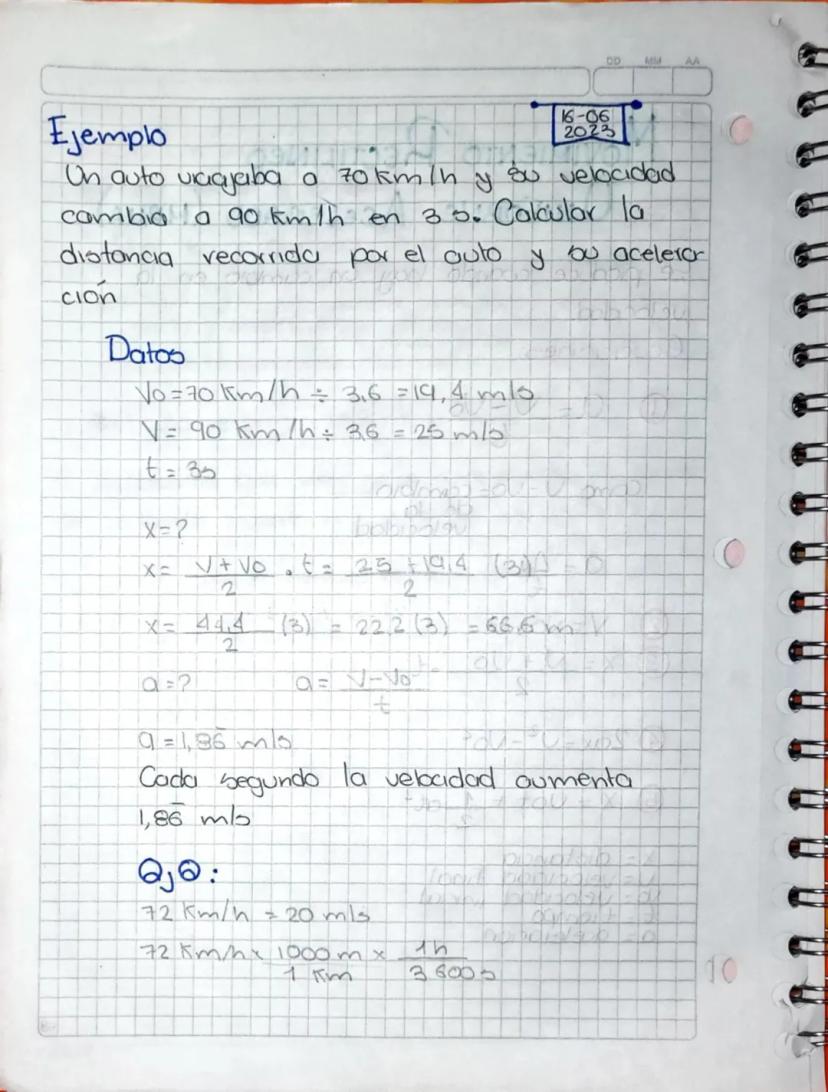 DD MM AA
16-06
2023
Ejemplo
Un auto viajaba a 70 km/h y su velocidad
cambia a 90 km/h en 3 s. Calcular la
distancia recorrida por el auto y su acelera
ción
Datos
Vo = 70 km/h ÷ 3,6 = 19,4 m/s
V = 90 km/h ÷ 3,6 = 25 m/s
t = 3s
x = ?
x = (V + Vo)/2 . t = (25 + 19,4)/2 (3)
x = 44,4/2 (3) = 22,2 (3) = 66,6 m
a = ? a = (V - Vo)/t
a = 1,86̄ m/s
Cada segundo la velocidad aumenta
1,86̄ m/s
Ojo:
72 km/h = 20 m/s
72 km/h x 1000 m/1 km x 1h/3600 s